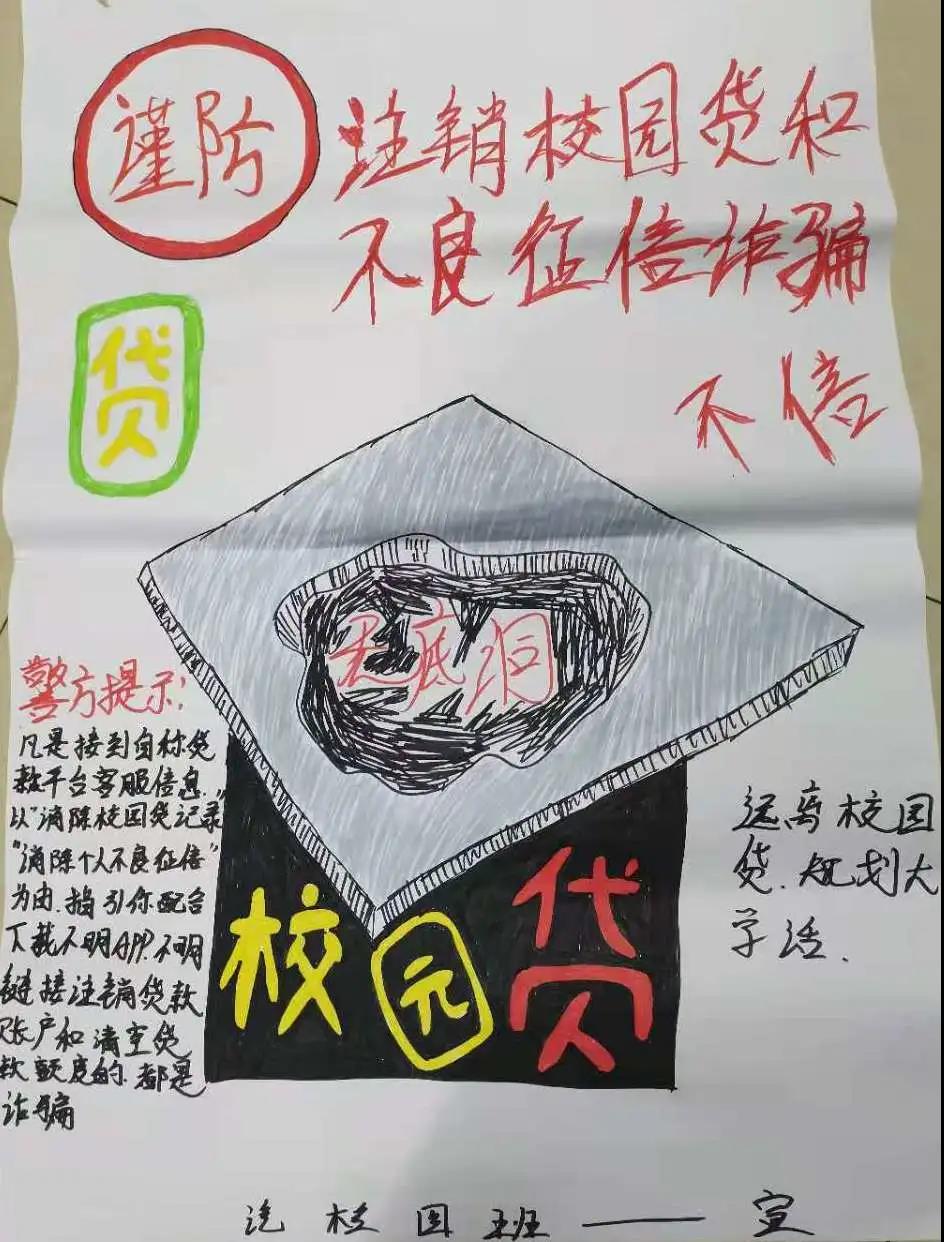 谨防
注销校园贷和
不良征信诈骗
贷
不信
无底洞
警方提示!
凡是接到自称贷
款平台客服信息,
以"消除校园贷记录"
"消除个人不良征信"
为由,指引你配合
下载不明APP.不明
链接注销贷款
账户和清空贷
款额度的.都是
诈骗
远离校园
贷.规划大
学活.
校园贷
校园班——宣